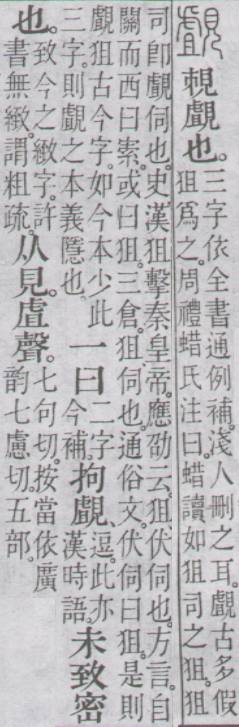 覰 䙿覰也。三字依全書通例補。淺人刪之耳。覰古多假狙爲之。周禮蜡氏注曰。蜡讀如狙司之狙。狙
司卽覰伺也。史漢狙擊秦皇帝。應劭云。狙、伏伺也。方言。自關而西曰索。或曰狙。三倉。狙、伺也。通俗文。伏伺曰狙。是則
覰狙古今字。如今本少此三字。則覰之本義隱也。一曰二字今補。拘覰、逗。此亦漢時語。未致密
也。致今之緻字。許書無緻。謂粗疏。从見。䖒聲。七句切。按當依廣韵七慮切。五部。